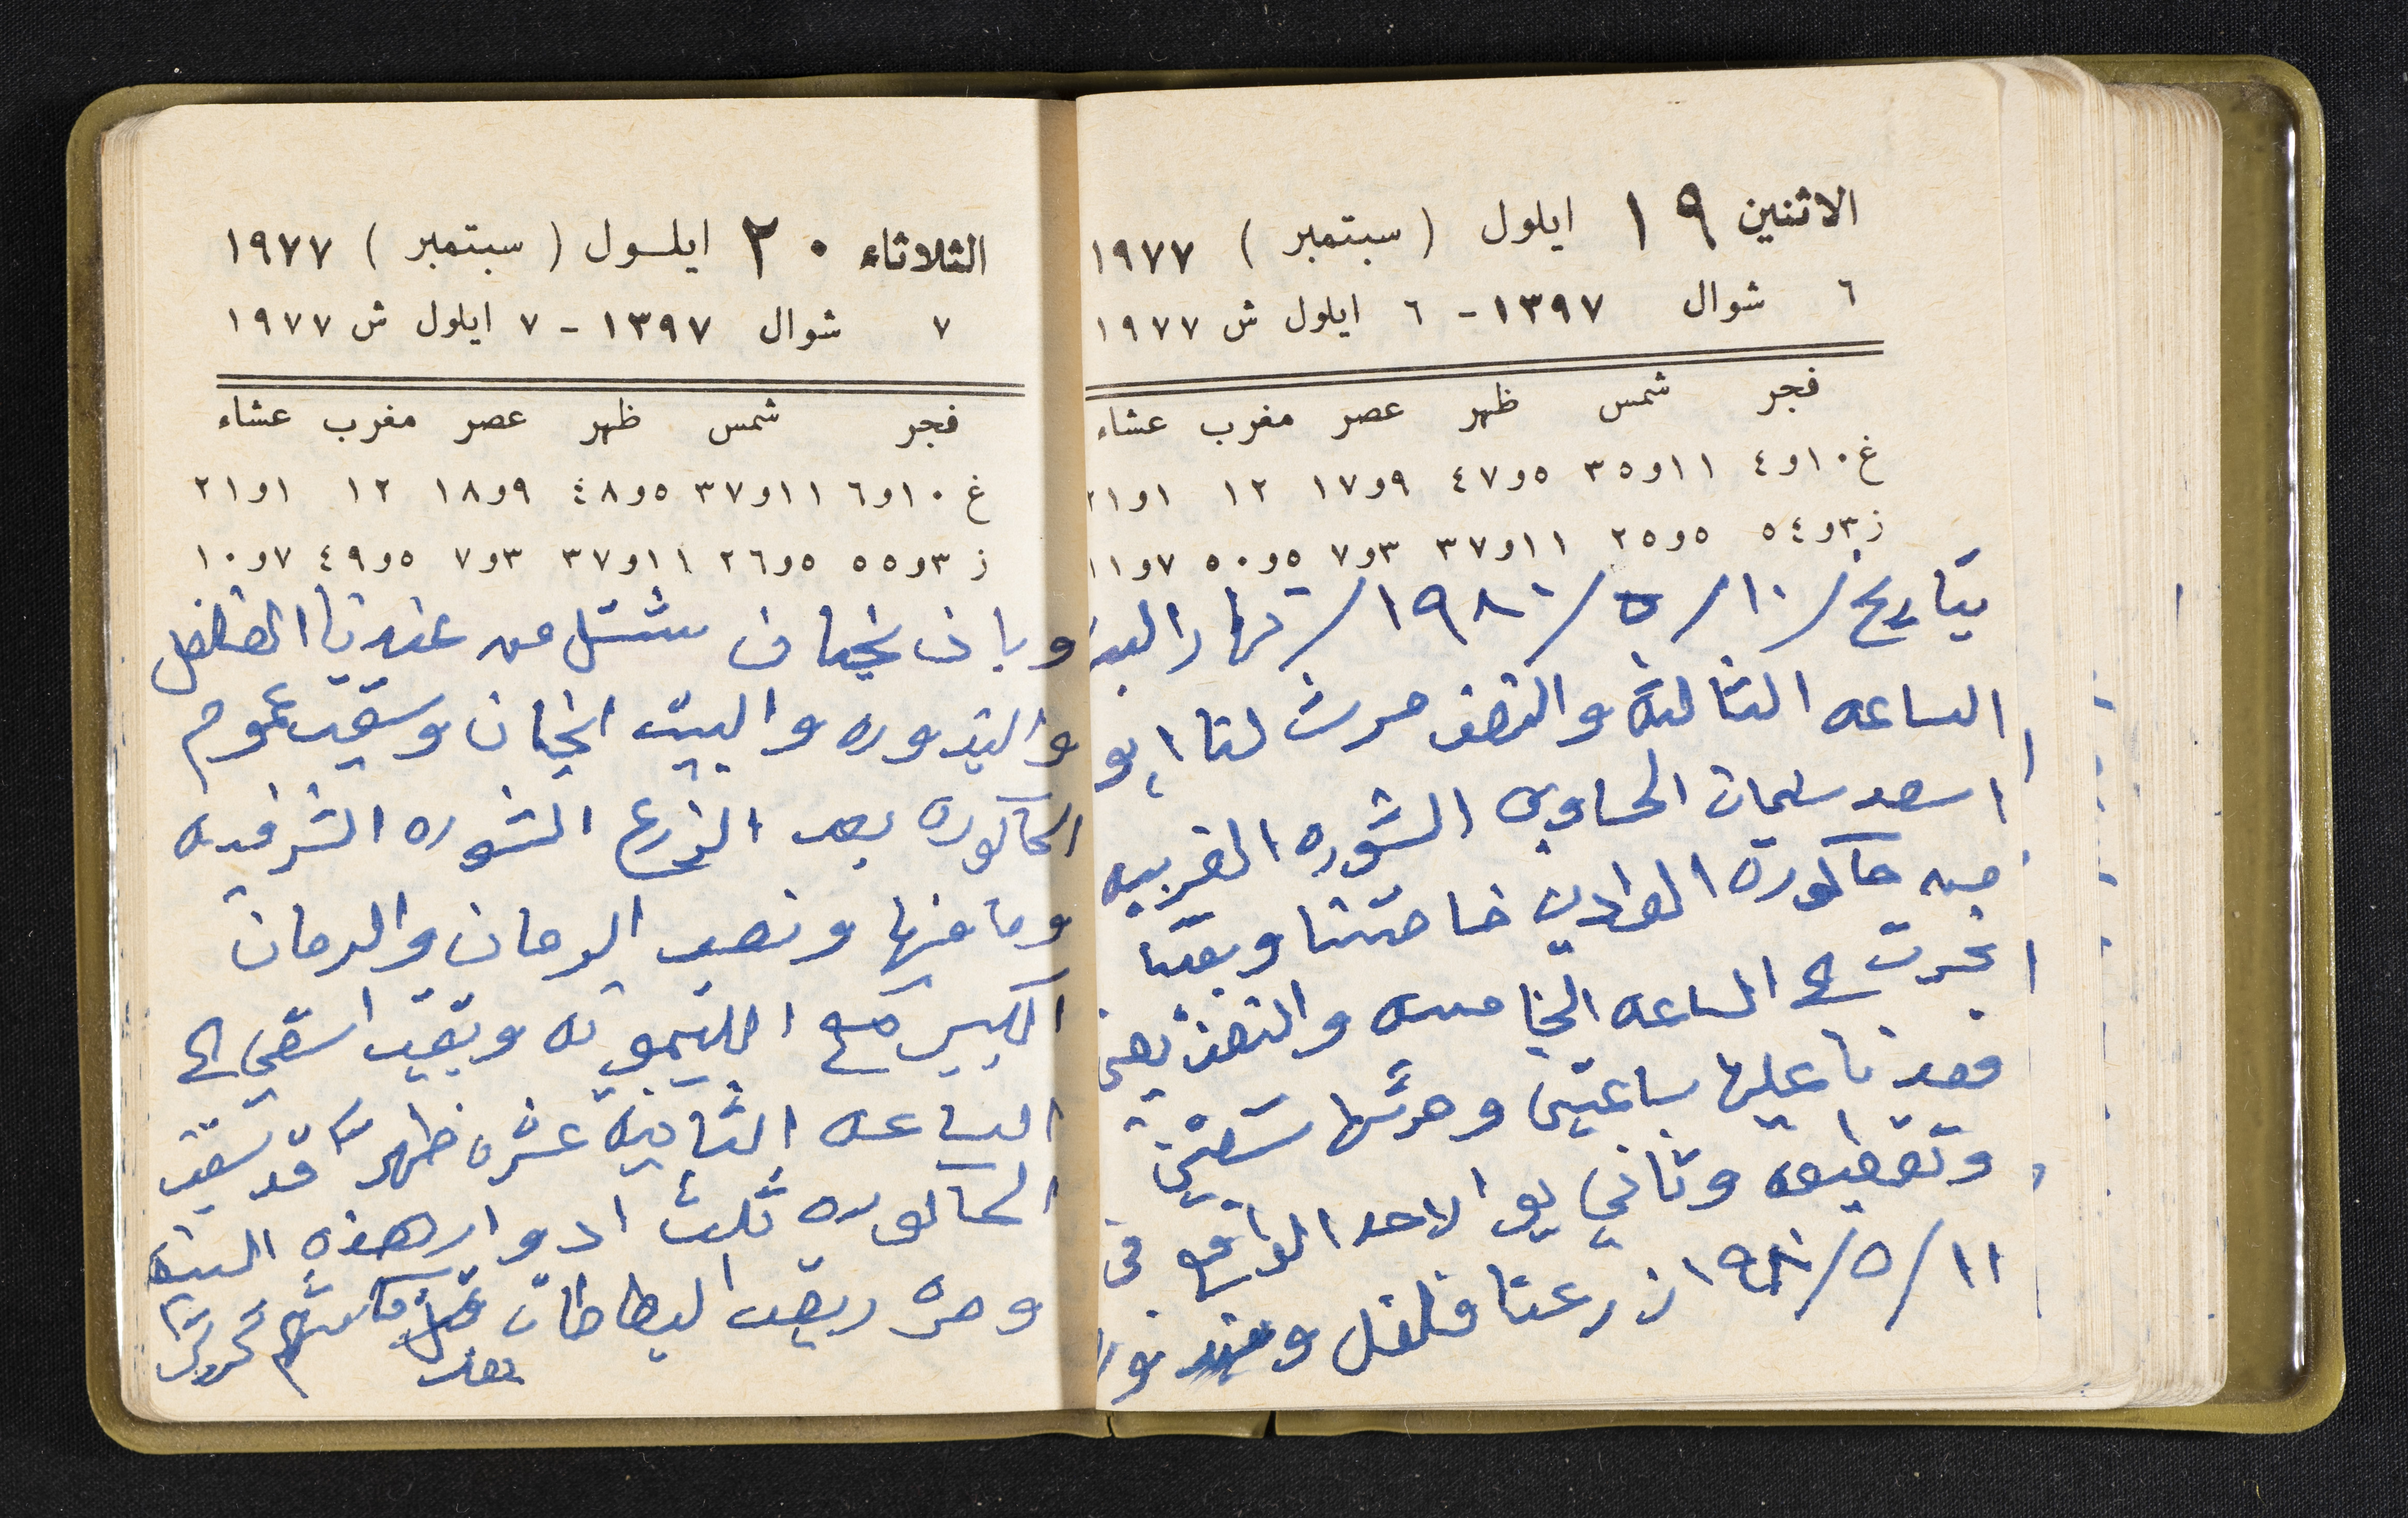 الاثنين ١٩ ايلول ( سبتمبر ) ١٩٧٧
٦ شوال ١٣٩٧ - ٦ ايلول ش ١٩٧٧
فجر شمس ظهر عصر مغرب عشاء
غ ١٠و٤ ١١و٣٥ ٥و٤٧ ٩و١٧ ١٢ ١و٢١
ز ٣و٥٤ ٥و٢٥ ١١و٣٧ ٣و٧ ٥و٥٠ ٧و١١
بتاريخ / ١٠ / ٥ / ١٩٨٠ / نهار السبت
الساعه الثالثه والنصف حرث لنا ابو
اسعد سليمان الحساوي الشوره الغربيه
من حاكورة الوادي خاصتنا وبقينا
نحرث الى الساعه الخامسه والنصف يعني
قعدنا عليها ساعتين وحرثها سكتين
وتقطيعه وثاني يوم الاحد الواقع في
١١ / ٥ / ١٩٨٠ زرعنا فلفل وبندوره
الثلاثاء ٢٠ ايلول ( سبتمبر ) ١٩٧٧
٧ شوال ١٣٩٧ - ٧ ايلول ش ١٩٧٧
فجر شمس ظهر عصر مغرب عشاء
غ ١٠و٦ ١١و٣٧ ٥و٤٨ ٩و١٨ ١٢ ١و٢١
ز ٣و٥٥ ٥و٢٦ ١١و٣٧ ٣و٧ ٥و٤٩ ٧و١٠
وباذنجان شتل من عندنا الفلفل
والبندوره والبيت انجان وسقيت عموم
الحاكوره بعد الزرع الشوره الشرقيه
وما فيها ونصب الرمان والرمان
الكبير مع الليمونه وبقيت اسقي الى
الساعه الثانيه عشره ظهراً قد سقيت
الحاكوره ثلث ادوار هذه السنه
ومره ربصت البطاطات
بعد